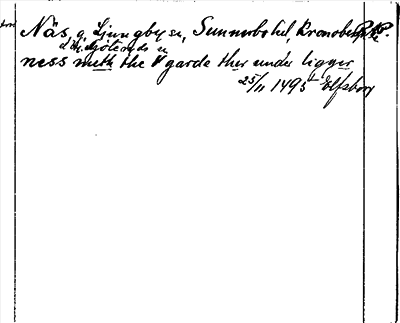 Näs, g, Ljungby sn, Sunnerbo hd, Kronobergs
ness meth the V garde ther under ligger
25/11 1495 Elfsborg